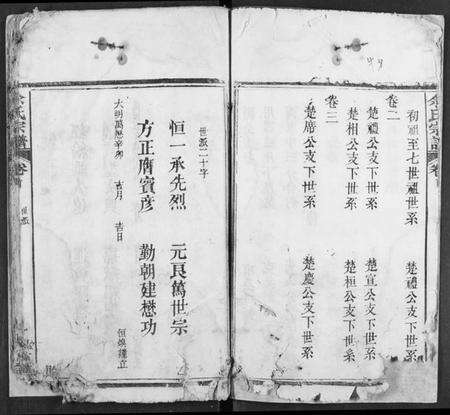 余氏宗譜
卷首
初祖至七世祖世系
卷二
楚禮公支下世系
楚禮公支下世系
楚宣公支下世系
楚相公支下世系
楚桓公支下世系
卷三
楚席公支下世系
楚慶公支下世系
世派二十字
恒一承先烈 元良萬世宗
方正膺寶彥 勤朝建懋功
大明萬曆辛卯 吉月 吉日
恒煥謹正
余氏宗譜
卷首
世派